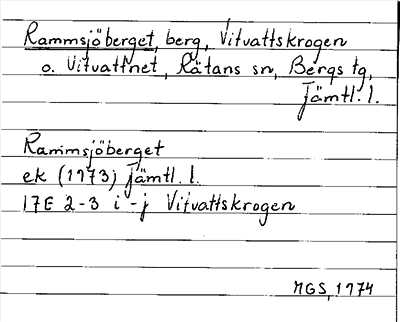 Rammsjöberget, berg, Vitvattskrogen
o. Vitvattnet, Rätans sn, Bergs tg,
Jämtl. l.
Rammsjöberget
ek (1973) Jämtl. l.
17E 2-3 i-j Vitvattskrogen
NGS, 1974